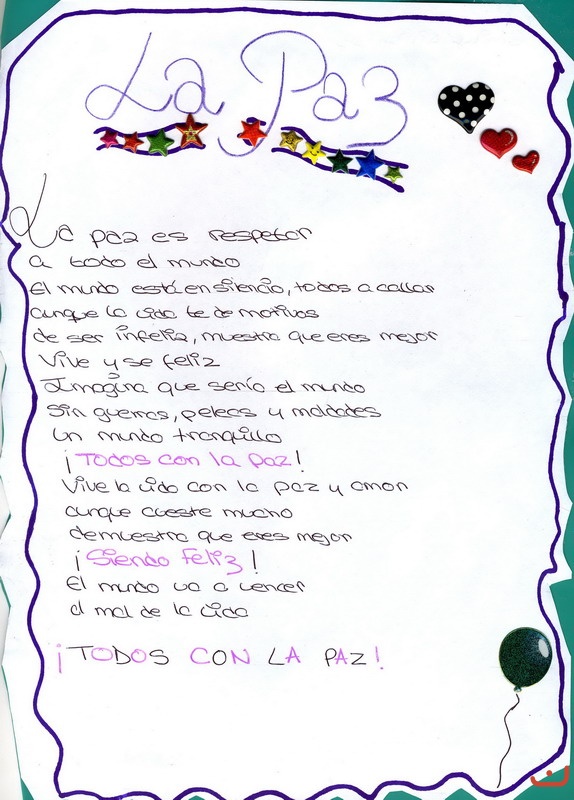 La Paz
La paz es respetar
a todo el mundo
El mundo está en silencio, todos a callar
aunque la vida te de motivos
de ser infeliz, muestra que eres mejor
Vive y se feliz
Imagina que sería el mundo
Sin guerras, peleas y maldades
un mundo tranquillo
¡Todos con la paz!
Vive la vida con la paz y amor
aunque cueste mucho
demuestra que eres mejor
¡Siendo feliz!
El mundo va a vencer
al mal de la vida
¡TODOS CON LA PAZ!